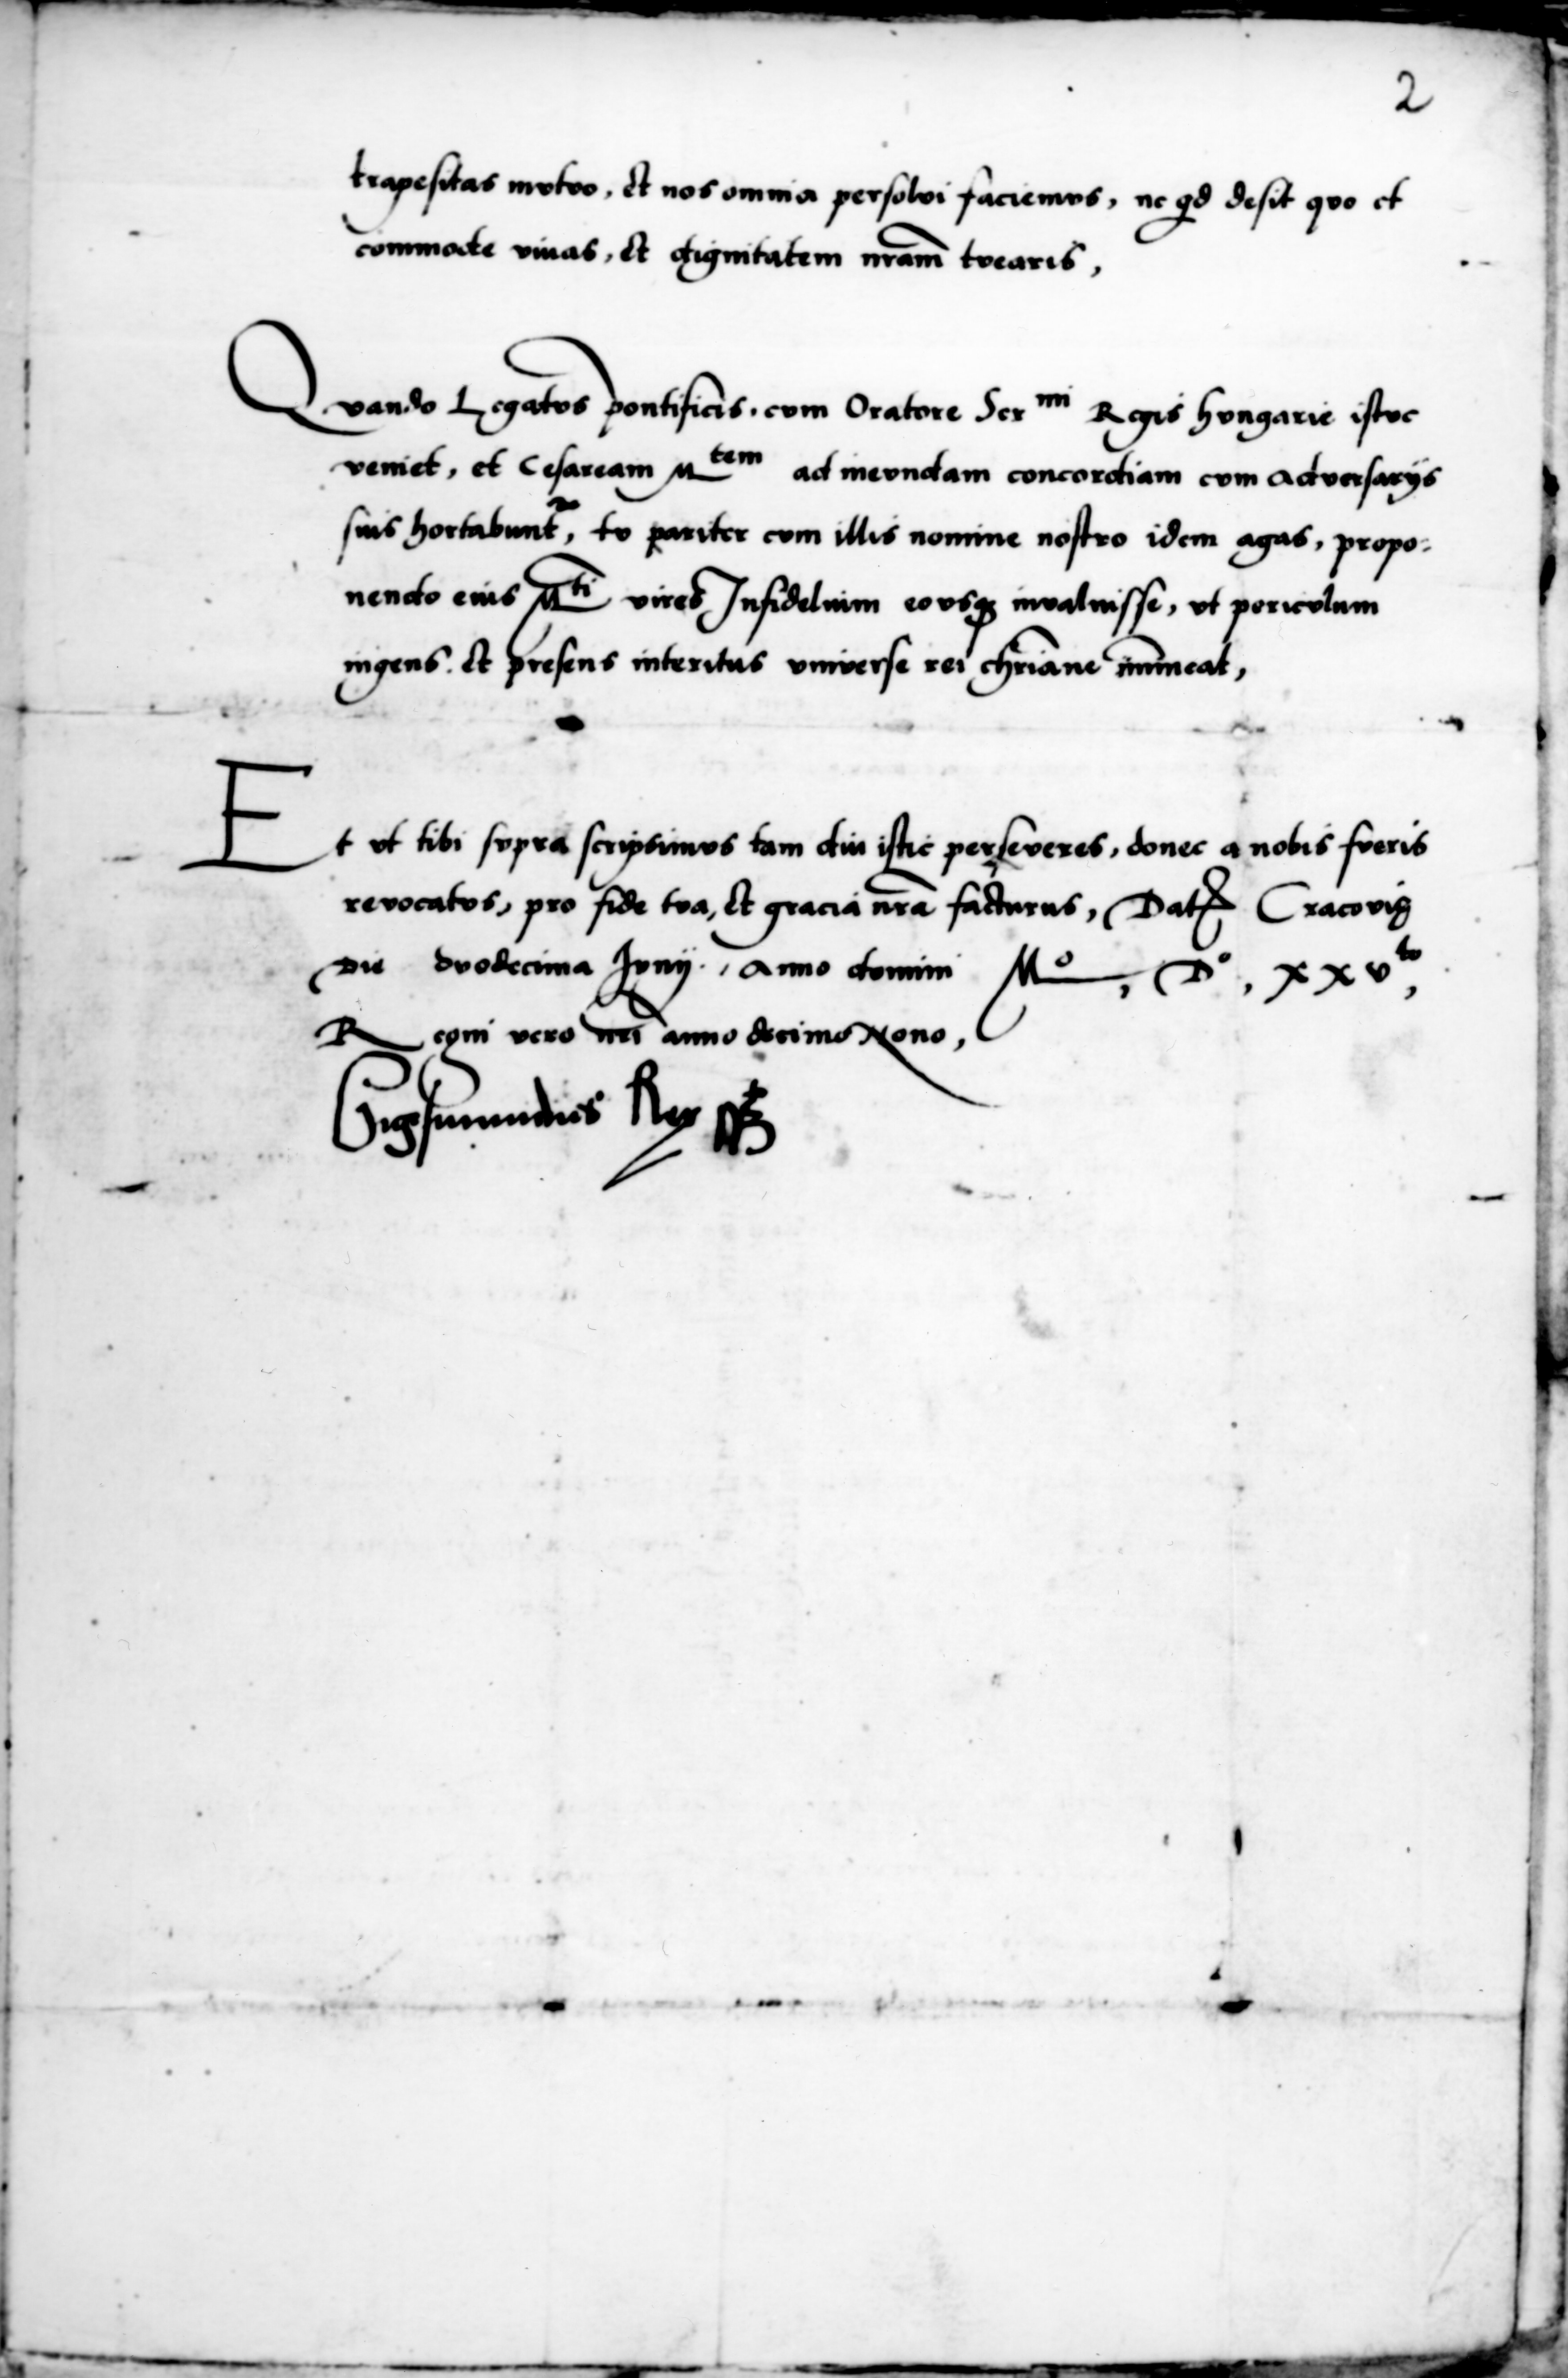 2
trapesitas mvtvo, et nos omnia persolvi faciemvs, ne qd desit qvo et
commode viuas, et dignitatem nram tvearis,
Qvando Legatvs pontificis, cvm Oratore Ser mi Regis hvngarie istvc
veniet, et Cesaream M tem ad inevndam concordiam cvm adversarijs
suis hortabunt, tv pariter cvm illis nomine nostro idem agas, propo=
nendo eius M ti vires Infidelium eovsq invaluisse, vt pericvlum
ingens et presens interitus vniverse rei chriane imineat,
Et vt tibi svpra scripsimvs tam diu istic perseveres, donec a nobis fveris
revocatvs, pro fide tva, et gracia nra facturus, Dat Cracovię
Die dvodecima Jvnij, Anno domini Mo, Do, xxv to,
Regni vero nri anno decimo Nono,
Sigismundus Rex